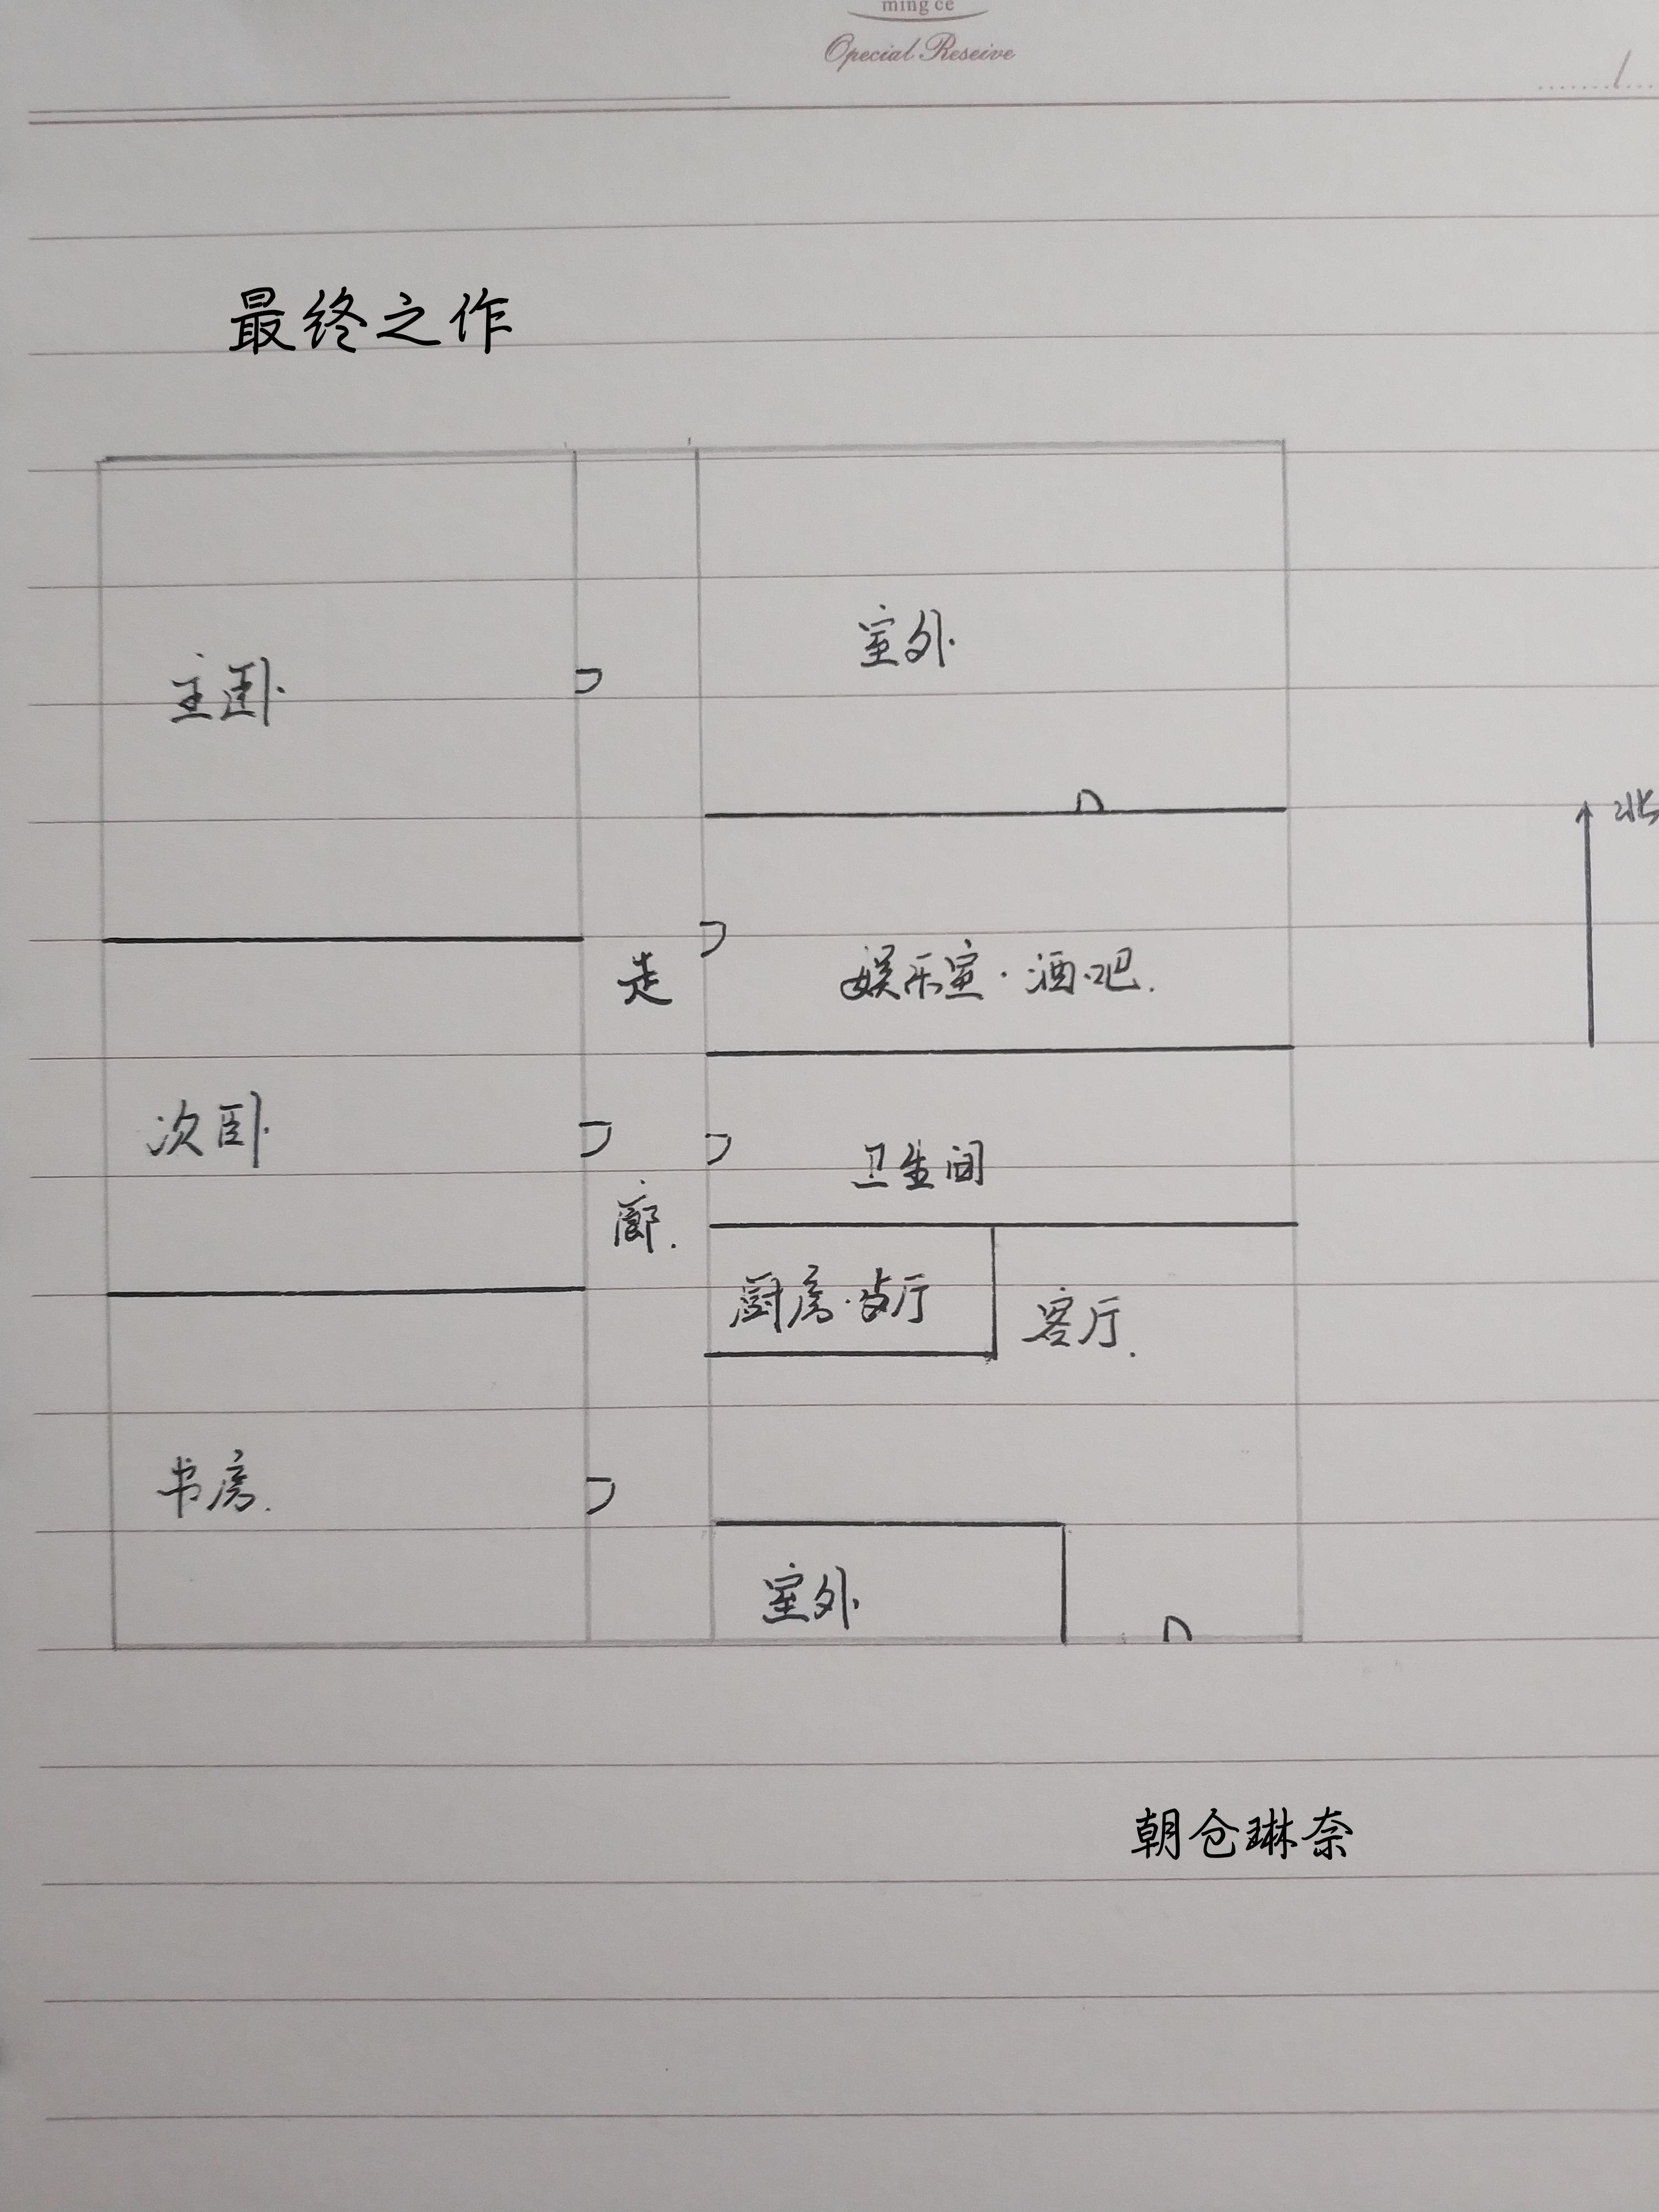 ming ce
Opecial Reseive
最终之作
主卧
室外
北
走
娱乐室·酒吧.
次卧
廊.
卫生间
厨房·餐厅
客厅.
书房.
室外
朝仓琳奈